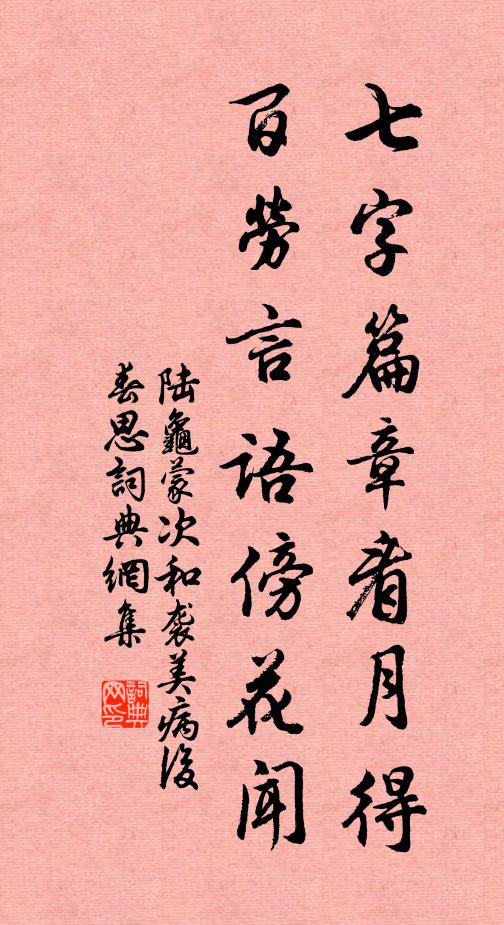 七字篇章看月得
百勞言語傍花聞
陸龜蒙次和袭美病後
春思詞典網集
詞典网印